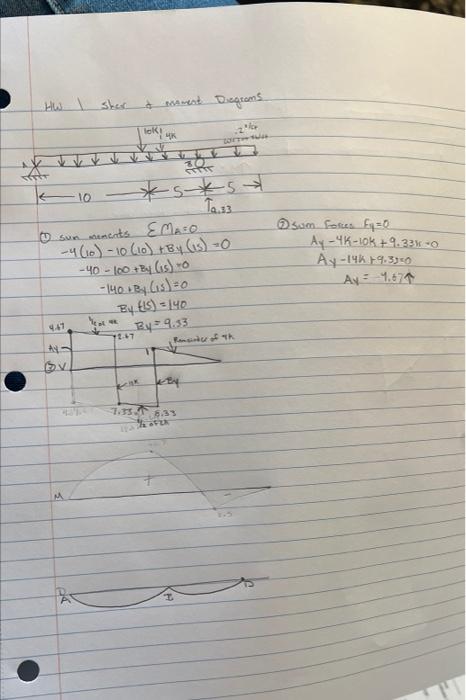 HW 1 Shear & moment Diagrams
10K 4K .2 k/ft
A B
10 5 5
9.33
① sum moments ΣMA=0
-4(10) -10(10) +By(15) =0
-40 -100 +By(15) =0
-140 +By(15)=0
By(15)=140
By=9.33
② sum forces Fy=0
Ay-4K-10K+9.33K=0
Ay-14K+9.33=0
Ay= -4.67↑
4.67 1/2 of 4K 2.67 1 Remainder of 4K
Ay
③ V
10K By
7.33 8.33
1/2 of 2k
+
M -
2.5
D
A B D